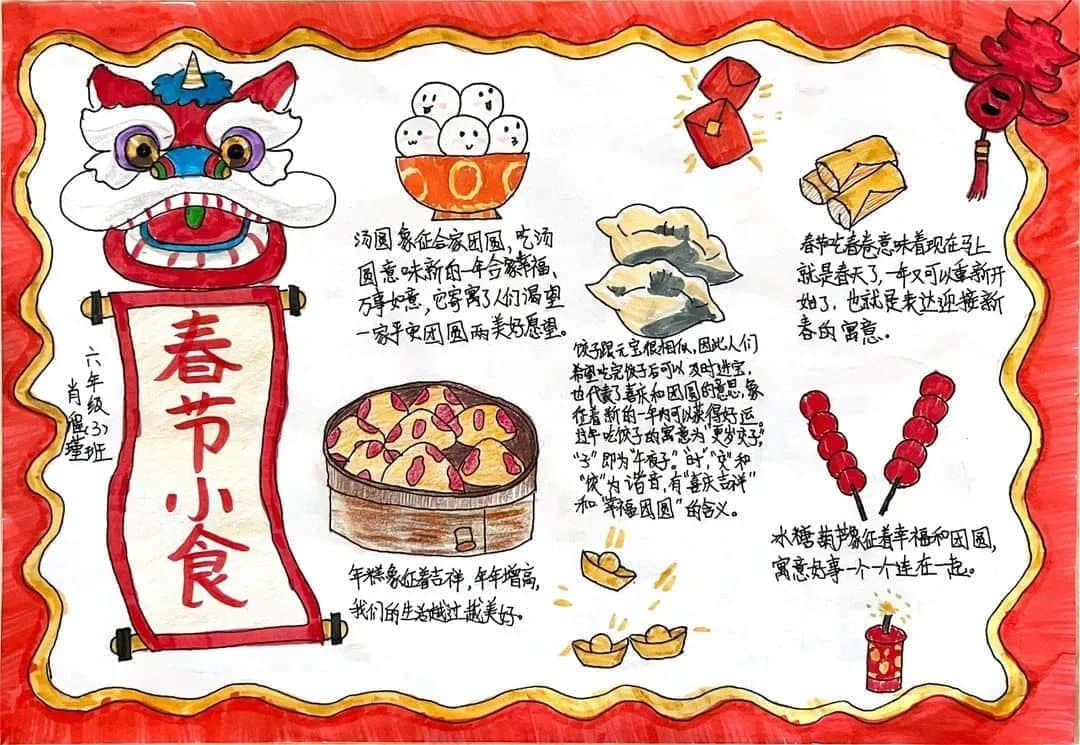 春节小食
六年级(3)班
肖
汤圆象征合家团圆,吃汤
圆意味新的一年合家幸福,
万事如意,它寄寓了人们渴望
一家平安团圆两美好愿望。
饺子跟元宝很相似,因此人们
希望吃完饺子后可以及时进宝,
也代表了喜庆和团圆的意思,象
征着新的一年内可以获得好运。
过年吃饺子的寓意为“更岁交子”,
“子”即为“午夜子”。时”,“交”和
“饺”为谐音,有“喜庆吉祥”
和“幸福团圆”的含义。
春节吃春卷意味着现在马上
就是春天了,一年又可以重新开
始了,也就是来达迎接新
春的寓意。
年糕象征着吉祥,年年增高,
我们的生活越过越美好。
冰糖葫芦象征着幸福和团圆,
寓意好事一个一个连在一起。